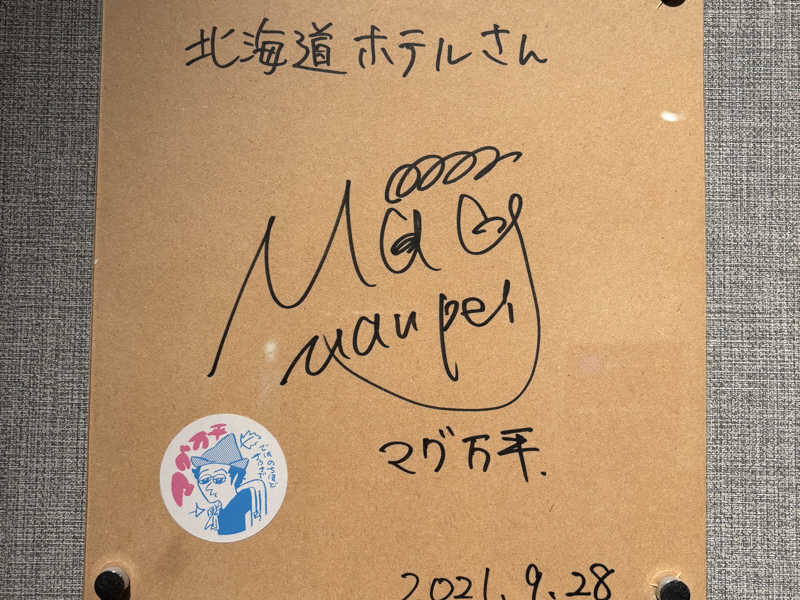 北海道ホテルさん
Mag
manpei
マグ万平.
マグ万平
2021.9.28